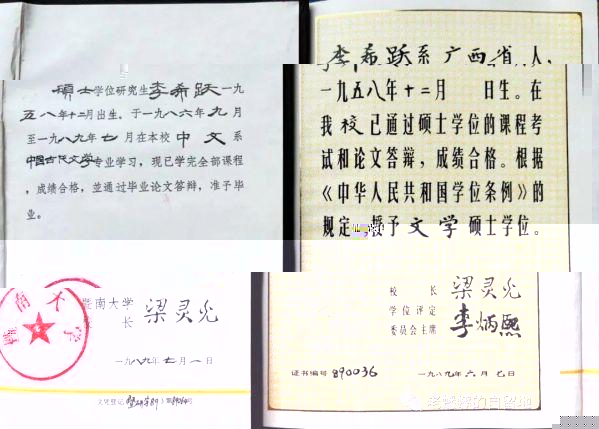 硕士学位研究生李希跃一九
五八年十二月出生。于一九八六年九月
至一九八九年七月在本校中文系
中国古代文学专业学习，现已学完全部课程
，成绩合格，並通过毕业论文答辩，准予毕
业。
暨南大学
校 长 梁灵光
一九八九年七月一日
李希跃系广西省 人，
一九五八年十二月 日生。在
我校已通过硕士学位的课程考
试和论文答辩，成绩合格。根据
《中华人民共和国学位条例》的
规定，授予文学硕士学位。
校 长 梁灵光
学位评定
委员会主席 李炳熙
证书编号 890036 一九八九年六月七日
老蜢蟧的自留地